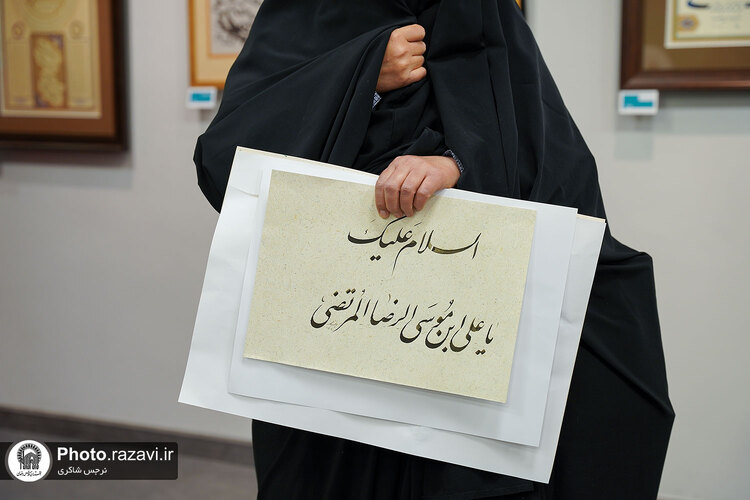 السلام علیک
یا علی ابن موسی الرضا المرتضی
Photo.razavi.ir
نرجس شاکری